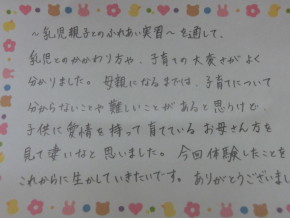 ～乳児親子とのふれあい実習～を通して、
乳児とのかかわり方や、子育ての大変さがよく
分かりました。母親になるまでは、子育てについて
分からないことや難しいことがあると思うけど、
子供に愛情を持って育てているお母さん方を
見て凄いなと思いました。今回体験したことを
これからに生かしていきたいです。ありがとうございまし